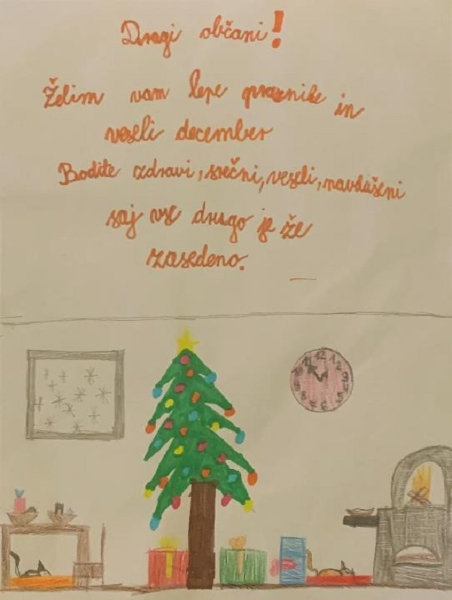 Dragi občani!
Želim vam lepe praznike in
veseli december
Bodite zdravi, srečni, veseli, navdušeni
saj vse drugo je že
zasedeno.